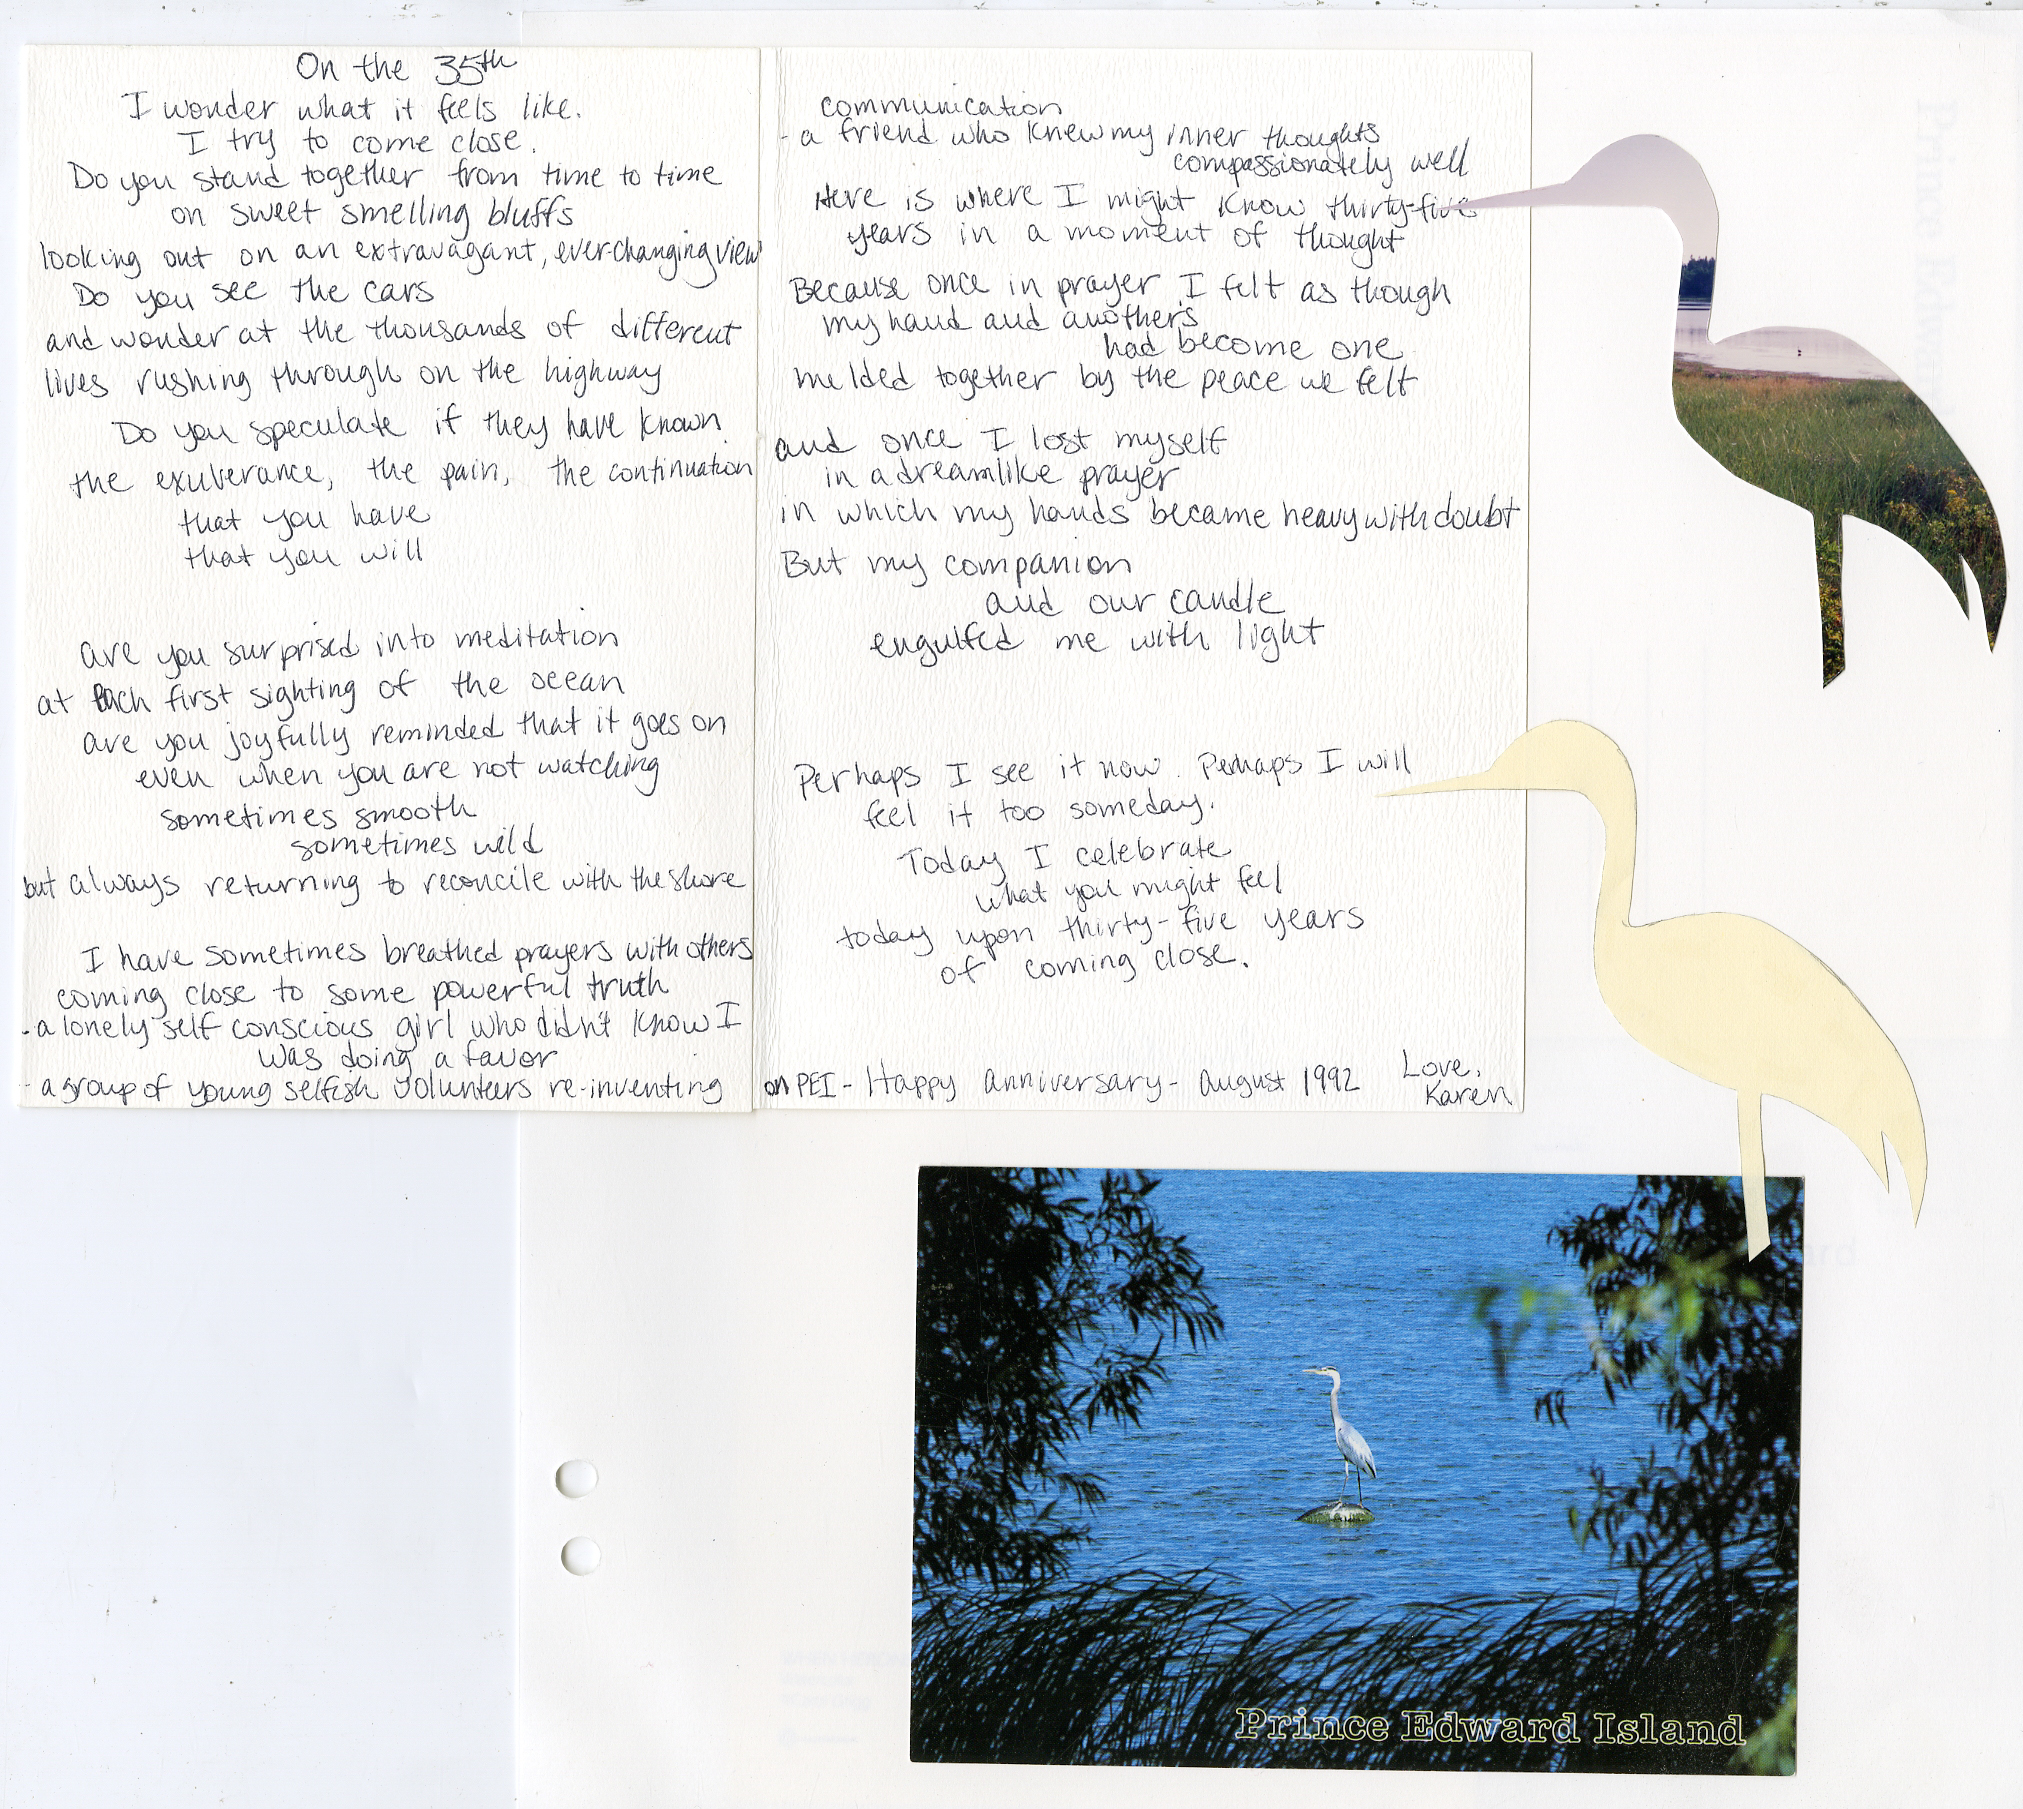 On the 35th
I wonder what it feels like.
I try to come close.
Do you stand together from time to time
on sweet smelling bluffs
looking out on an extravagant, everchanging view
Do you see the cars
and wonder at the thousands of different
lives rushing through on the highway
Do you speculate if they have known
the exuberance, the pain, the continuation
that you have
that you will
are you surprised into meditation
at each first sighting of the ocean
are you joyfully reminded that it goes on
even when you are not watching
sometimes smooth
sometimes wild
but always returning to reconcile with the shore
I have sometimes breathed prayers with others
coming close to some powerful truth
- a lonely self conscious girl who didn't know I
was doing a favor
- a group of young selfish volunteers re-inventing
communication
- a friend who knew my inner thoughts
compassionately well
Here is where I might know thirty-five
years in a moment of thought
Because once in prayer I felt as though
my hand and another's
had become one
melded together by the peace we felt
and once I lost myself
in a dreamlike prayer
in which my hands became heavy with doubt
But my companion
and our candle
engulfed me with light
Perhaps I see it now. Perhaps I will
feel it too someday.
Today I celebrate
what you might feel
today upon thirty-five years
of coming close.
on PEI - Happy anniversary - august 1992
Love,
Karen
Prince Edward Island